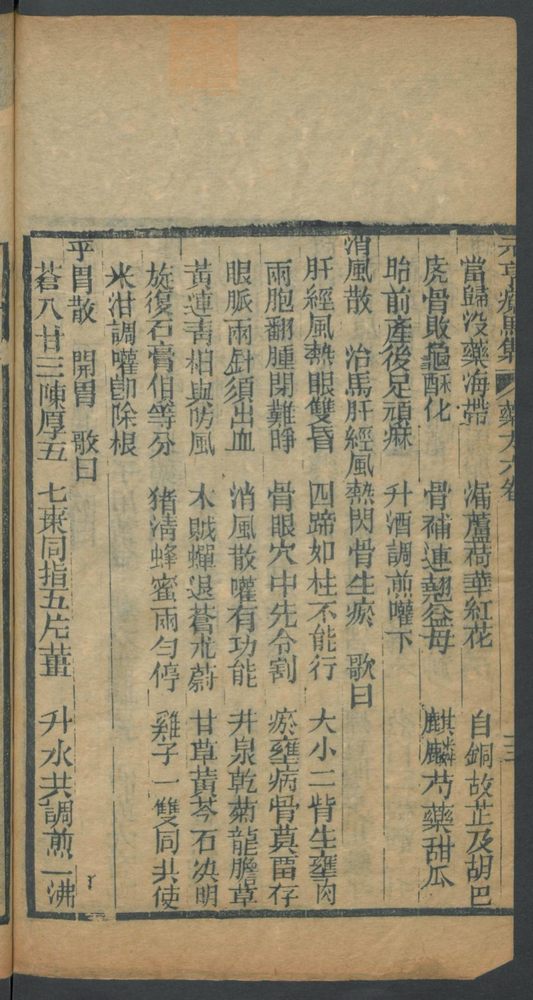 元亨療馬集 藥方六卷 十三
當歸沒藥海帶 漏蘆荷葉紅花 自銅故芷及胡巴
虎骨敗龜酥化 骨補連翹益母 麒麟芍藥甜瓜
胎前產後足頑麻 升酒調煎嚾下
消風散 治馬肝經風熱閃骨生瘀 歌曰
肝經風熱眼雙昏 四蹄如柱不能行 大小二眥生壅肉
兩胞翻腫閉難睜 骨眼穴中先令割 瘀壅病骨莫畱存
眼脈兩針須出血 消風散嚾有功能 井泉乾菊龍膽草
黃連青相與防風 木賊蟬退蒼朮蔚 甘草黃芩石決明
旋復石膏伯等分 猪淸蜂蜜兩勻停 雞子一雙同共使
米泔調嚾卽除根
平胃散 開胃 歌曰
蒼八甘三陳厚五 七棗同指五片薑 升水共調煎一沸